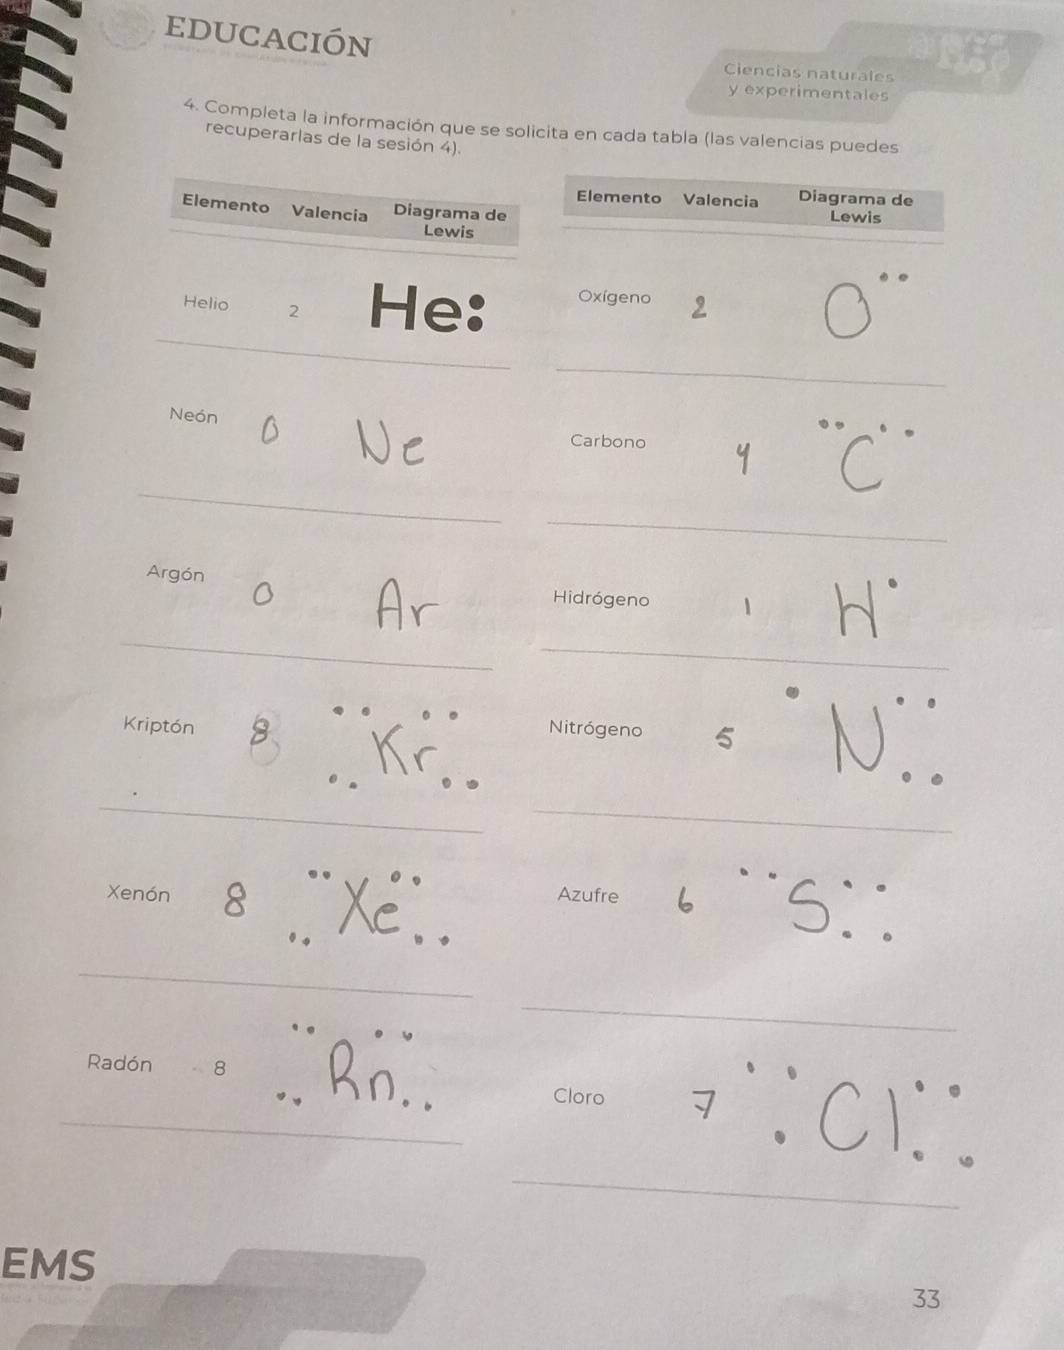 EDUCACIÓN
Ciencias naturales
y experimentales
4. Completa la información que se solicita en cada tabla (las valencias puedes
recuperarlas de la sesión 4).
Elemento Valencia Diagrama de
Lewis
Helio 2 He:
Neón 0 Ne
Argón 0 Ar
Kriptón 8 Kr
Xenón 8 Xe
Radón 8 Rn
Elemento Valencia Diagrama de
Lewis
Oxígeno 2 O
Carbono 4 C
Hidrógeno 1 H
Nitrógeno 5 N
Azufre 6 S
Cloro 7 Cl
EMS
33